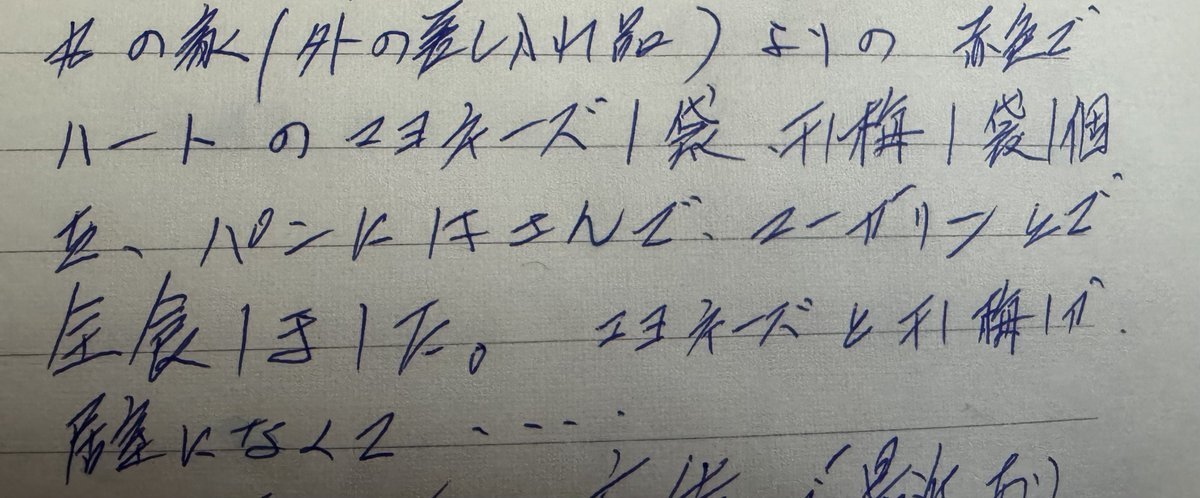 の家(外の差し入れ品)よりの 赤色で
ハートの マヨネーズ1袋、1袋1個
を、パンにはさんで、マーガリンとで
全食しました。 マヨネーズと
居室になくて ・・・・